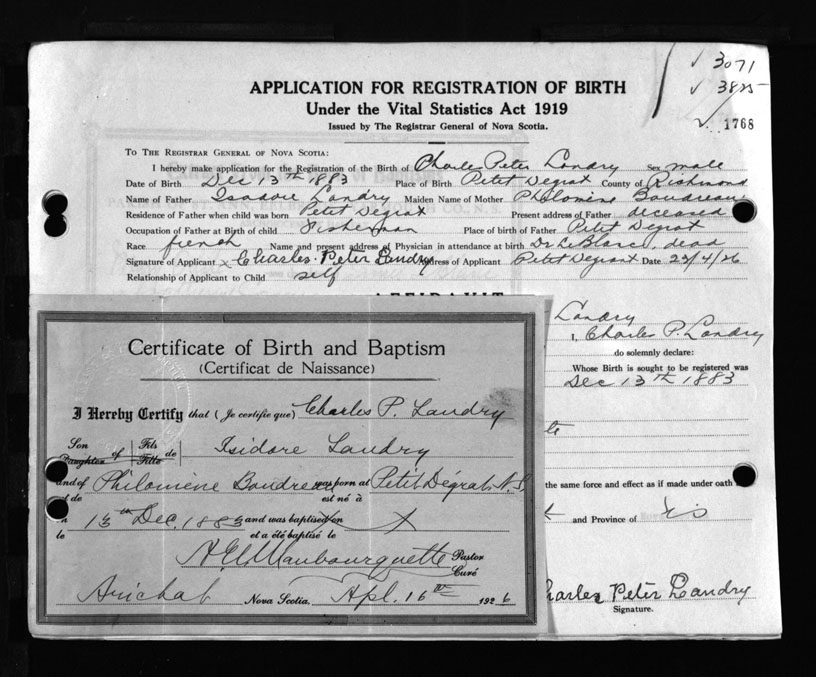 ✓ 3071
APPLICATION FOR REGISTRATION OF BIRTH
✓ 3825
Under the Vital Statistics Act 1919
1768
Issued by The Registrar General of Nova Scotia.
TO THE REGISTRAR GENERAL OF NOVA SCOTIA:
I hereby make application for the Registration of the Birth of Charles Peter Landry Sex male
Date of Birth Dec 13th 1883 Place of Birth Petit Degrat County of Richmond
Name of Father Isadore Landry Maiden Name of Mother Philomine Boudreau
Residence of Father when child was born Petit Degrat Present address of Father deceased
Occupation of Father at Birth of child Fisherman Place of birth of Father Petit Degrat
Race french Name and present address of Physician in attendance at birth Dr LeBlanc, dead
Signature of Applicant x Charles Peter Landry Address of Applicant Petit Degrat Date 23/4/26
Relationship of Applicant to Child self
AFFIDAVIT
Landry
I, Charles P. Landry
do solemnly declare:
Whose Birth is sought to be registered was
Dec 13th 1883
the same force and effect as if made under oath
and Province of
Charles Peter Landry
Signature.
Certificate of Birth and Baptism
(Certificat de Naissance)
I Hereby Certify that (Je certifie que) Charles P. Landry
Son Fils
Daughter of Fille de Isidore Landry
and of Philomène Boudreau was born at Petit Dégrat N.S.
et de est né à
13th Dec. 1883 and was baptised on x
le et a été baptisé le
Pastor
Curé
Arichat Nova Scotia, Apl. 16th 1926